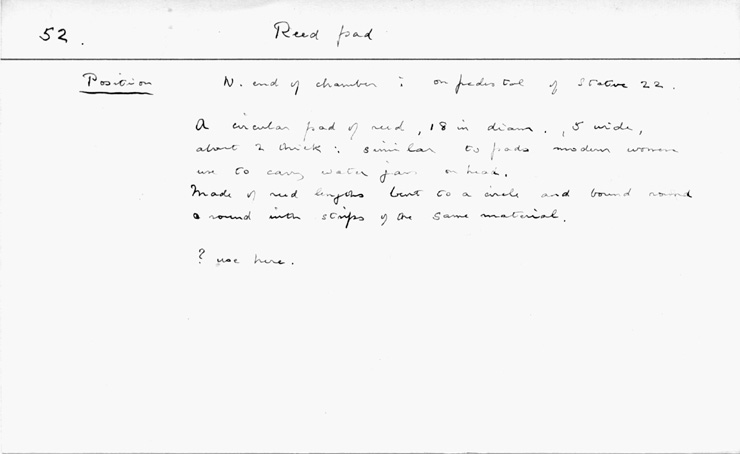 52.
Reed pad
Position N. end of chamber : on pedestal of Statue 22.
A circular pad of reed, 18 in diam., 5 wide,
about 2 thick : similar to pads modern women
use to carry water jars on head.
Made of reed lengths bent to a circle and bound round
& round with strips of the same material.
? use here.